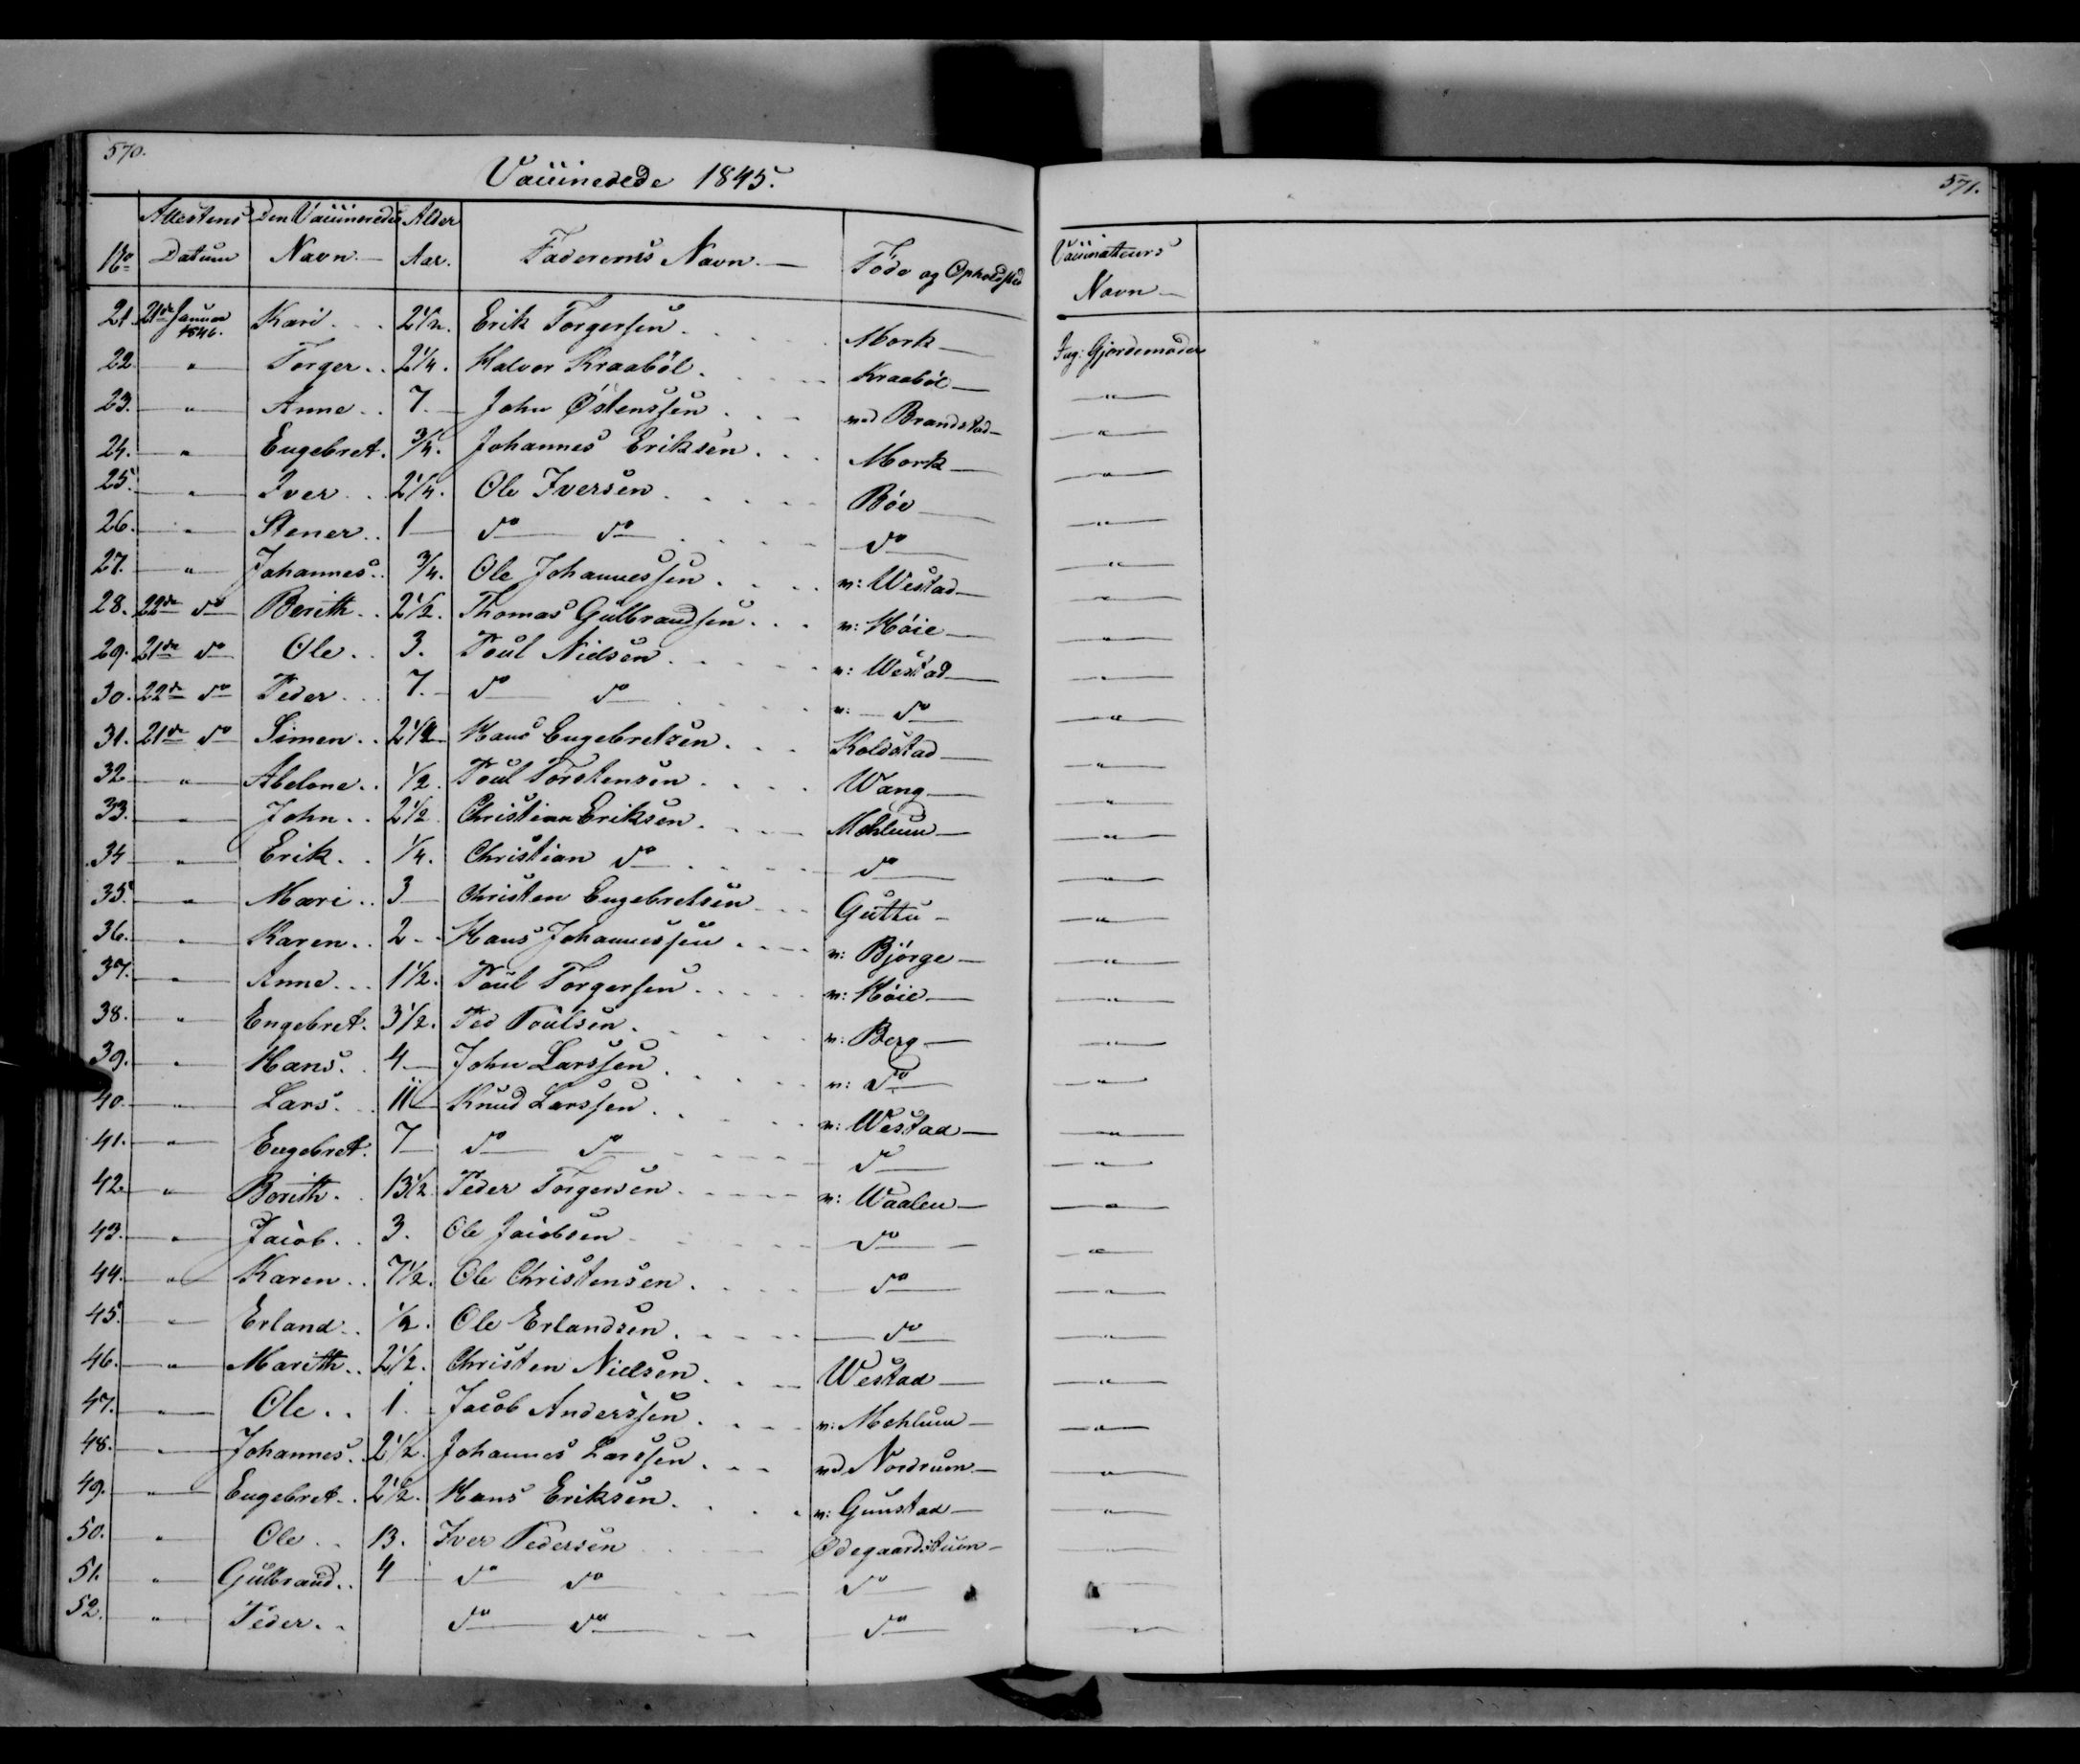 570.
Vaccinerede 1845.
571.
No Attestens Datum Den Vaccineredes Navn Alder Aar. Faderens Navn. Føde og Opholdsted Vaccinateurs Navn
21. 21de Januar 1846. Kari 2 1/2. Erik Torgersen. Mork Jog: Gjordemoder
22. " Torger 2 1/4. Halvor Kraabøl. Kraabøl "
23. " Anne 7. John Østenssen ved Brandstad "
24. " Engebret. 3/4. Johannes Eriksen. Mork "
25. " Iver 2 1/4. Ole Iversen Bøe "
26. " Stener 1 do do do "
27. " Johannes 3/4. Ole Johannessen. v: Westad "
28. 22de do Berith 2 1/2. Thomas Gulbrandsen v: Høie "
29. 21de do Ole 3. Poul Nielsen v: Westad "
30. 22de do Peder 7. do do v: do "
31. 21de do Simen Hans Engebretsen Koldstad "
32. " Abelone 1/2. Poul Torstensen Wang "
33. " John 2 1/2 Christian Eriksen. Mehlum "
34 " Erik 1/4. Christian do do "
35. " Mari 3 Christen Engebretsen Guttu "
36. " Karen 2 Hans Johannessen v: Bjørge "
37. " Anne 1 1/2. Poul Torgersen v: Høie "
38. " Engebret. 3 1/2. Ped Poulsen. v: Berg "
39. " Hans 4 John Larssen v: do "
40. " Lars 11 Knud Larssen v: Westad "
41. " Engebret. 7 do do do "
42. " Berith 13 1/2 Peder Torgersen v: Waalen "
43. " Jacob 3. Ole Jacobsen do "
44. " Karen 7 1/2. Ole Christensen. do "
45. " Erland 1/2. Ole Erlandsen. do "
46. " Marith 2 1/2. Christen Nielsen. Westad "
47. " Ole 1 Jacob Anderssen. v: Mehlum "
48. " Johannes 2 1/2. Johannes Larssen. ved Nordrum "
49. " Engebret 2 1/2. Hans Eriksen. v: Gunstad "
50. " Ole 13. Iver Pedersen Ødegaardstuen "
51. " Gulbrand 4 do do do
52. " Peder do do do "